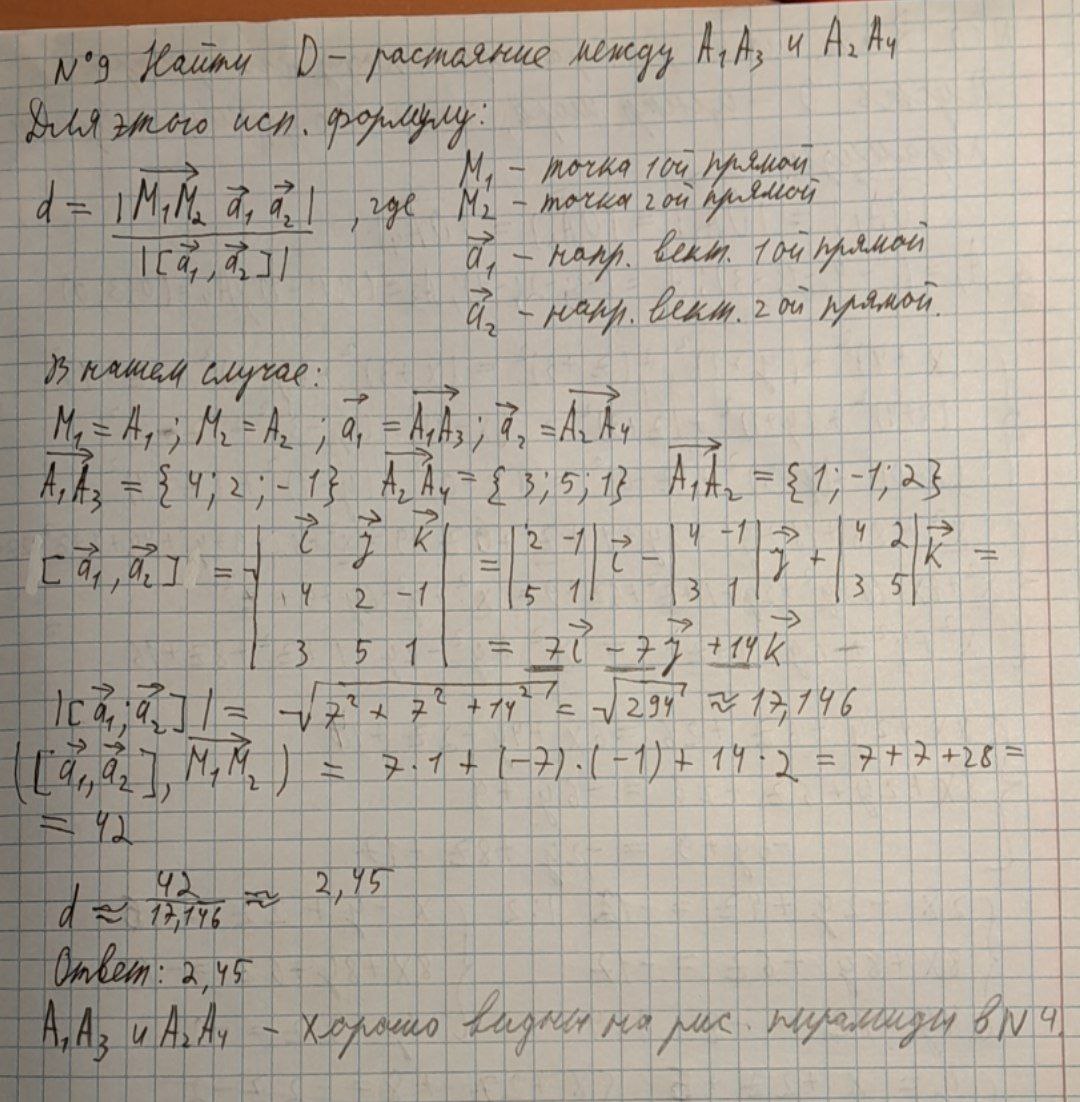 N°9 Найти D - растаяние между A₁A₃ и A₂A₄
Для этого исп. формулу:
d = |M₁M₂ a₁ a₂| / |[a₁, a₂]| , где
M₁ - точка 1ой прямой
M₂ - точка 2ой прямой
a₁ - напр. вект. 1ой прямой
a₂ - напр. вект. 2ой прямой.
В нашем случае:
M₁ = A₁ ; M₂ = A₂ ; a₁ = A₁A₃ ; a₂ = A₂A₄
A₁A₃ = {4; 2; -1} A₂A₄ = {3; 5; 1} A₁A₂ = {1; -1; 2}
[a₁, a₂] = | i j k ; 4 2 -1 ; 3 5 1 | = | 2 -1 ; 5 1 | i - | 4 -1 ; 3 1 | j + | 4 2 ; 3 5 | k =
= 7i - 7j + 14k
|[a₁; a₂]| = √(7² + 7² + 14²) = √294 ≈ 17,146
([a₁, a₂], M₁M₂) = 7·1 + (-7)·(-1) + 14·2 = 7+7+28 =
= 42
d ≈ 42 / 17,146 ≈ 2,45
Ответ: 2,45
A₁A₃ и A₂A₄ - хорошо видны на рис. пирамиды в N 4.